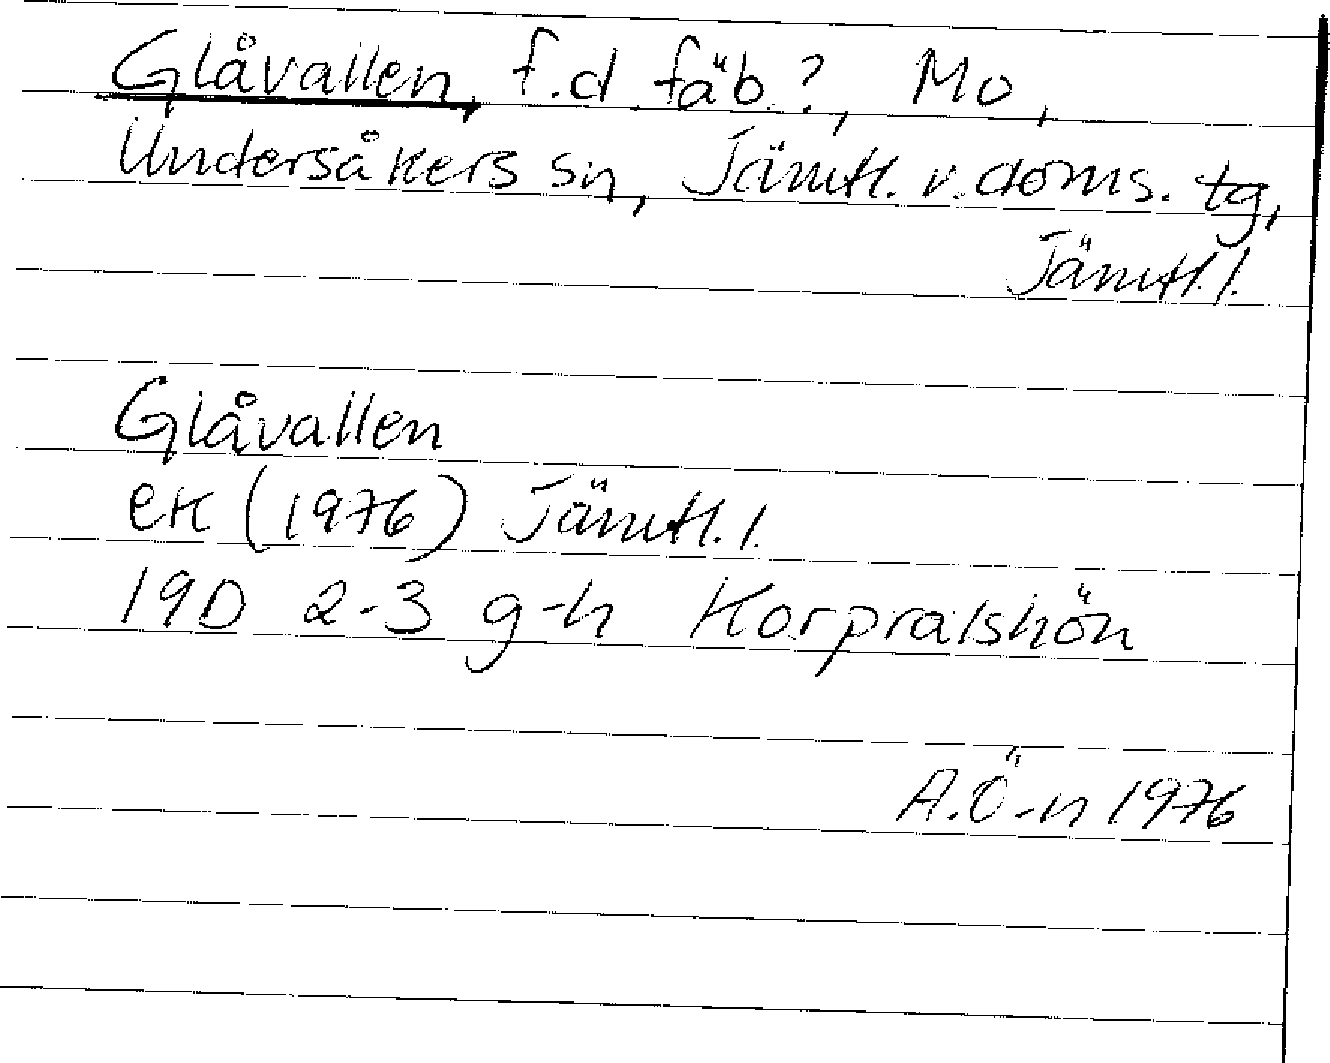 Glåvallen, f.d. fäb.?, Mo,
Undersåkers sn, Jämtl. v. doms. tg,
Jämtl. l.
Glåvallen
ek (1976) Jämtl. l.
19D 2-3 g-h Korpralshön
A.Ö-n 1976